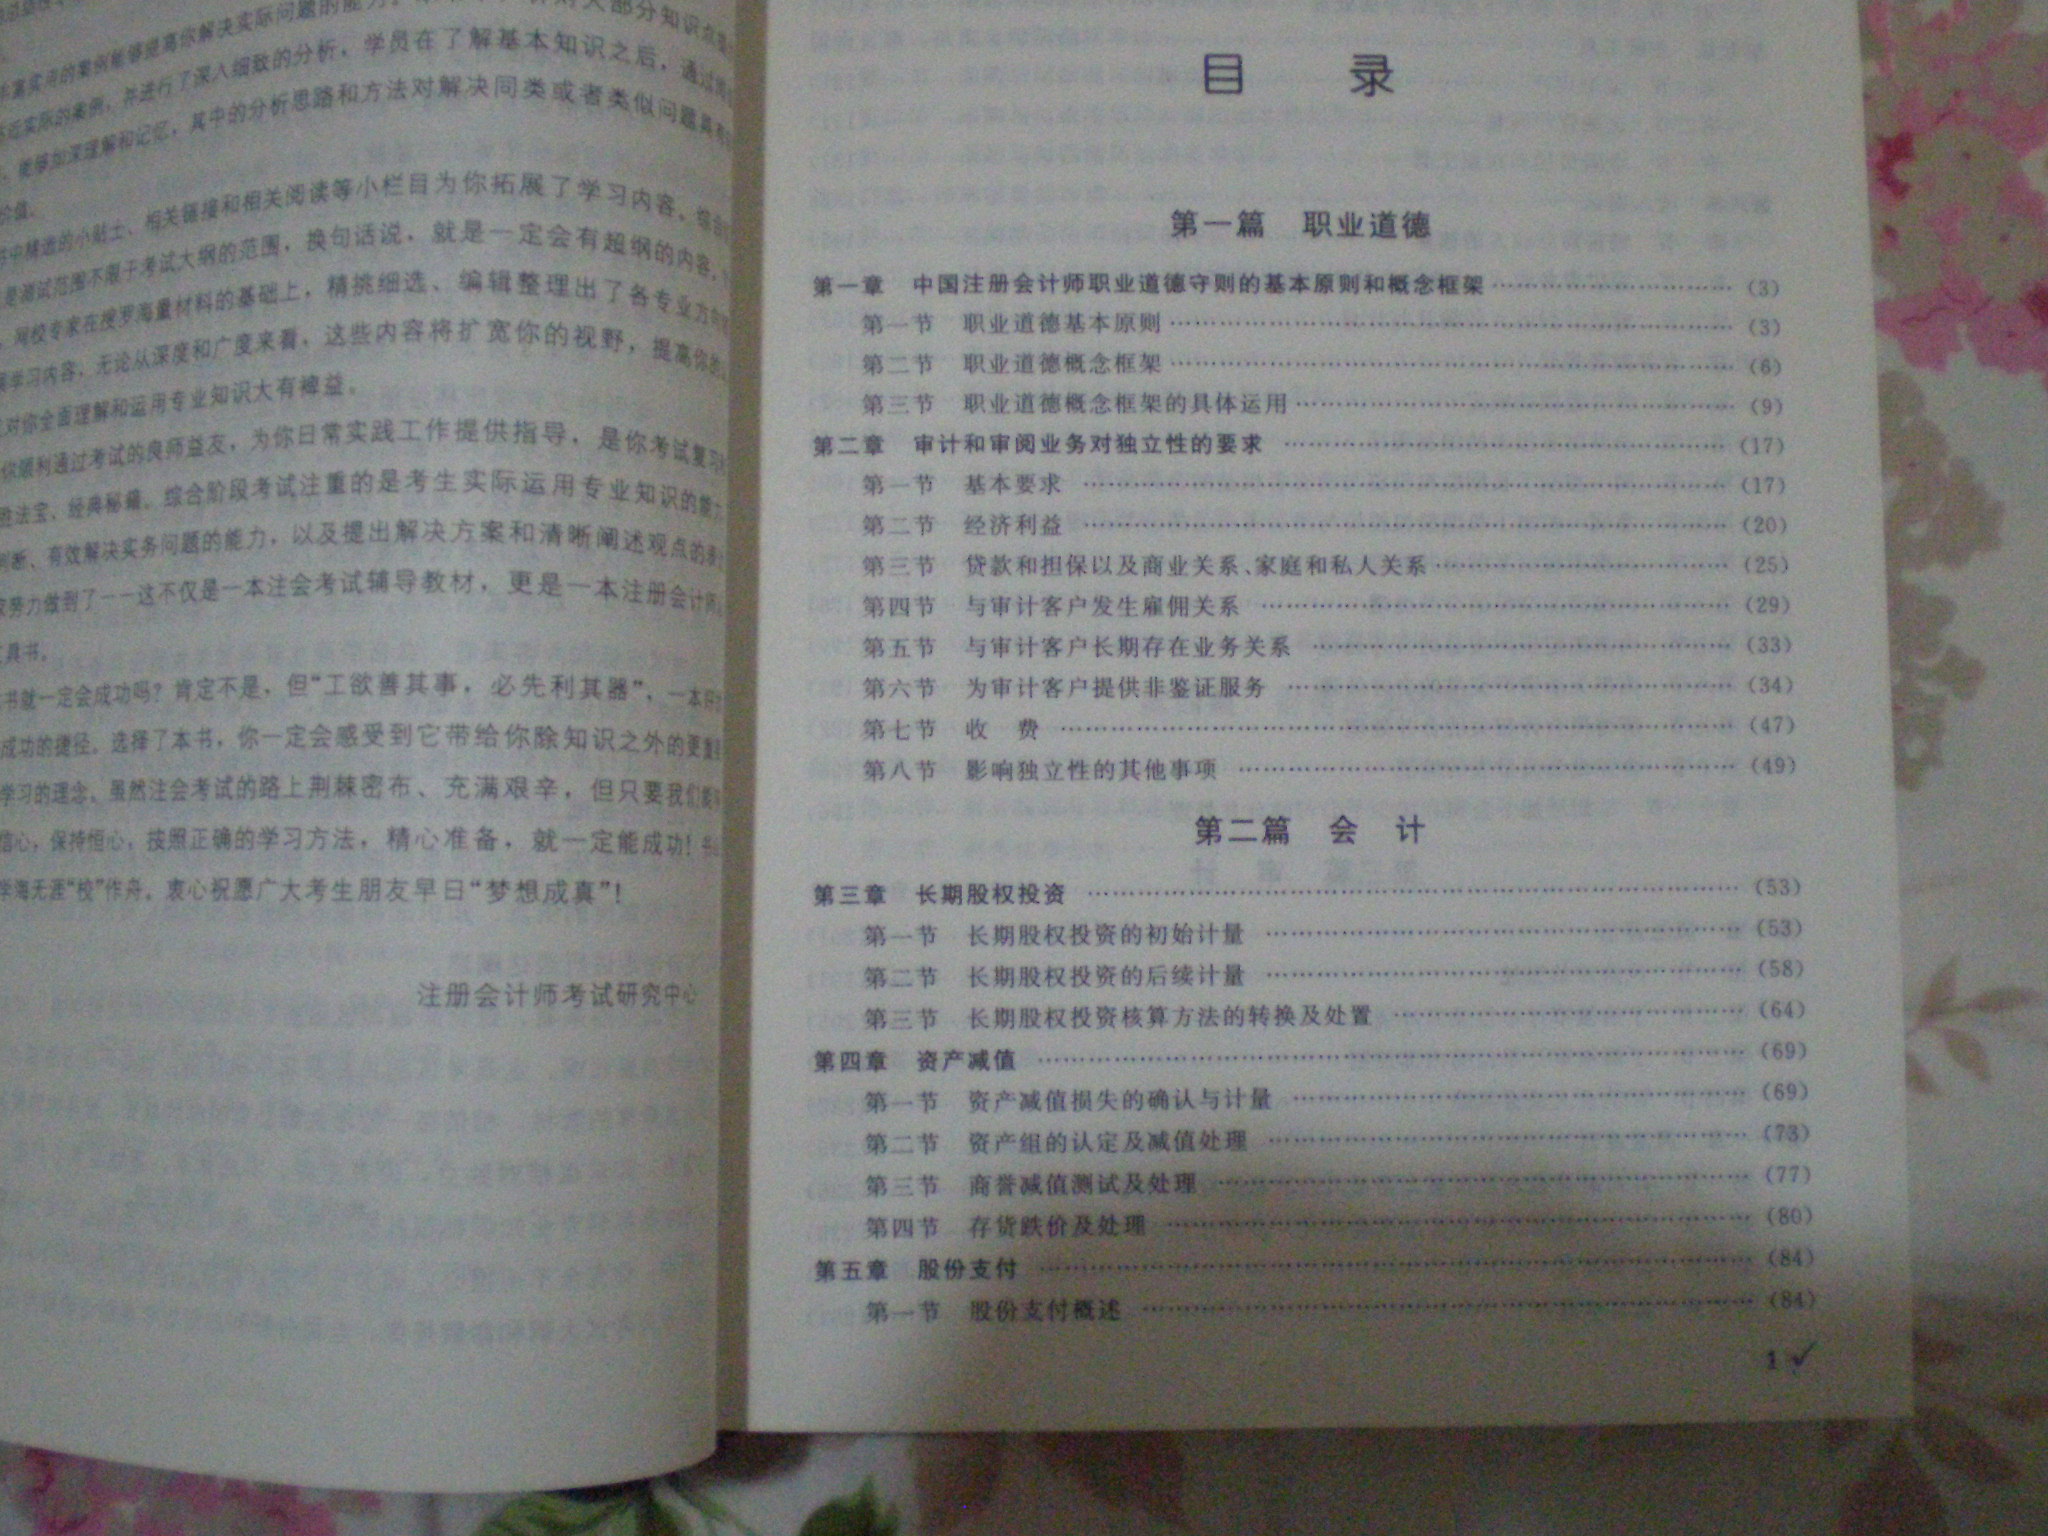 学员在了解基本知识之后，通过
其中的分析思路和方法对解决同类或者类似问题具有
价值。
相关链接和相关阅读等小栏目为你拓展了学习内容。综合
是测试范围不限于考试大纲的范围，换句话说，就是一定会有超纲的内容，
网校专家在搜罗海量材料的基础上，精挑细选、编辑整理出了各专业方
展学习内容，无论从深度和广度来看，这些内容将扩宽你的视野，提高你
对你全面理解和运用专业知识大有裨益。
你顺利通过考试的良师益友，为你日常实践工作提供指导，是你考试复习
胜法宝、经典秘籍。综合阶段考试注重的是考生实际运用专业知识的能
判断、有效解决实务问题的能力，以及提出解决方案和清晰阐述观点的
努力做到了——这不仅是一本注会考试辅导教材，更是一本注册会计师
工具书。
书就一定会成功吗？肯定不是，但“工欲善其事，必先利其器”，一本
成功的捷径。选择了本书，你一定会感受到它带给你除知识之外的更
学习的理念。虽然注会考试的路上荆棘密布、充满艰辛，但只要我们
信心，保持恒心，按照正确的学习方法，精心准备，就一定能成功！
学海无涯“校”作舟。衷心祝愿广大考生朋友早日“梦想成真”！
注册会计师考试研究中心
目 录
第一篇 职业道德
第一章 中国注册会计师职业道德守则的基本原则和概念框架 …… (3)
第一节 职业道德基本原则 …… (3)
第二节 职业道德概念框架 …… (6)
第三节 职业道德概念框架的具体运用 …… (9)
第二章 审计和审阅业务对独立性的要求 …… (17)
第一节 基本要求 …… (17)
第二节 经济利益 …… (20)
第三节 贷款和担保以及商业关系、家庭和私人关系 …… (25)
第四节 与审计客户发生雇佣关系 …… (29)
第五节 与审计客户长期存在业务关系 …… (33)
第六节 为审计客户提供非鉴证服务 …… (34)
第七节 收 费 …… (47)
第八节 影响独立性的其他事项 …… (49)
第二篇 会 计
第三章 长期股权投资 …… (53)
第一节 长期股权投资的初始计量 …… (53)
第二节 长期股权投资的后续计量 …… (58)
第三节 长期股权投资核算方法的转换及处置 …… (64)
第四章 资产减值 …… (69)
第一节 资产减值损失的确认与计量 …… (69)
第二节 资产组的认定及减值处理 …… (73)
第三节 商誉减值测试及处理 …… (77)
第四节 存货跌价及处理 …… (80)
第五章 股份支付 …… (84)
第一节 股份支付概述 …… (84)
1